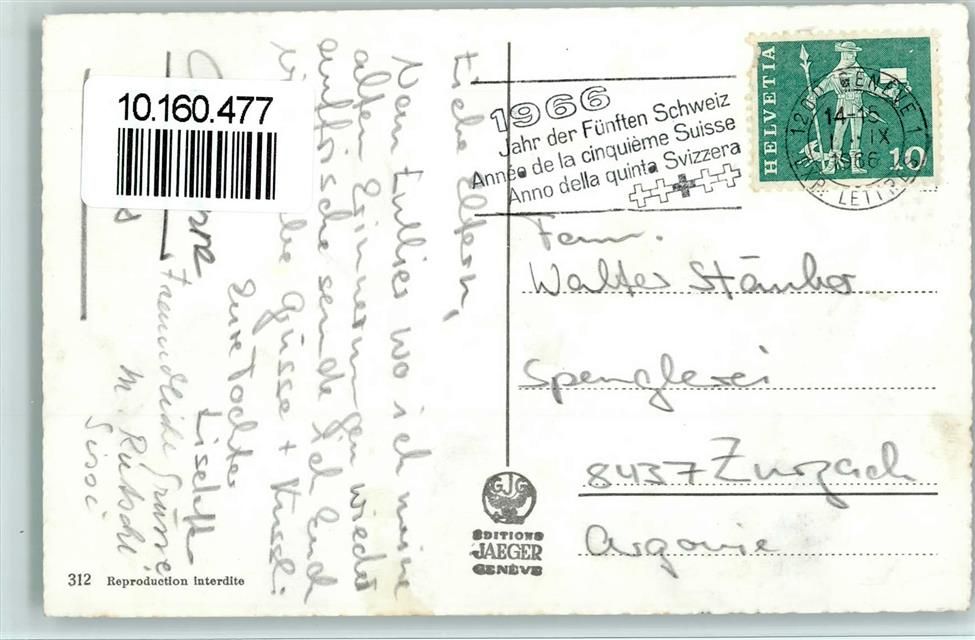 10.160.477
1966
Jahr der Fünften Schweiz
Année de la cinquième Suisse
Anno della quinta Svizzera
HELVETIA
10
1200 GENÈVE 1
14-15
IX
1966
EXP. LETTRES
Liebe Eltern,
Vom wo ich meine
alten Erinnerungen wieder
auffrische sende ich Euch
liebe Grüsse + Küsse.
Eure Tochter
Liselott
Freundliche Grüsse
M. Rütschi
Sissi
Fam.
Walter Stäuber
Spenglerei
8437 Zurzach
Argovie
GJG
EDITIONS
JAEGER
GENÈVE
312 Reproduction interdite